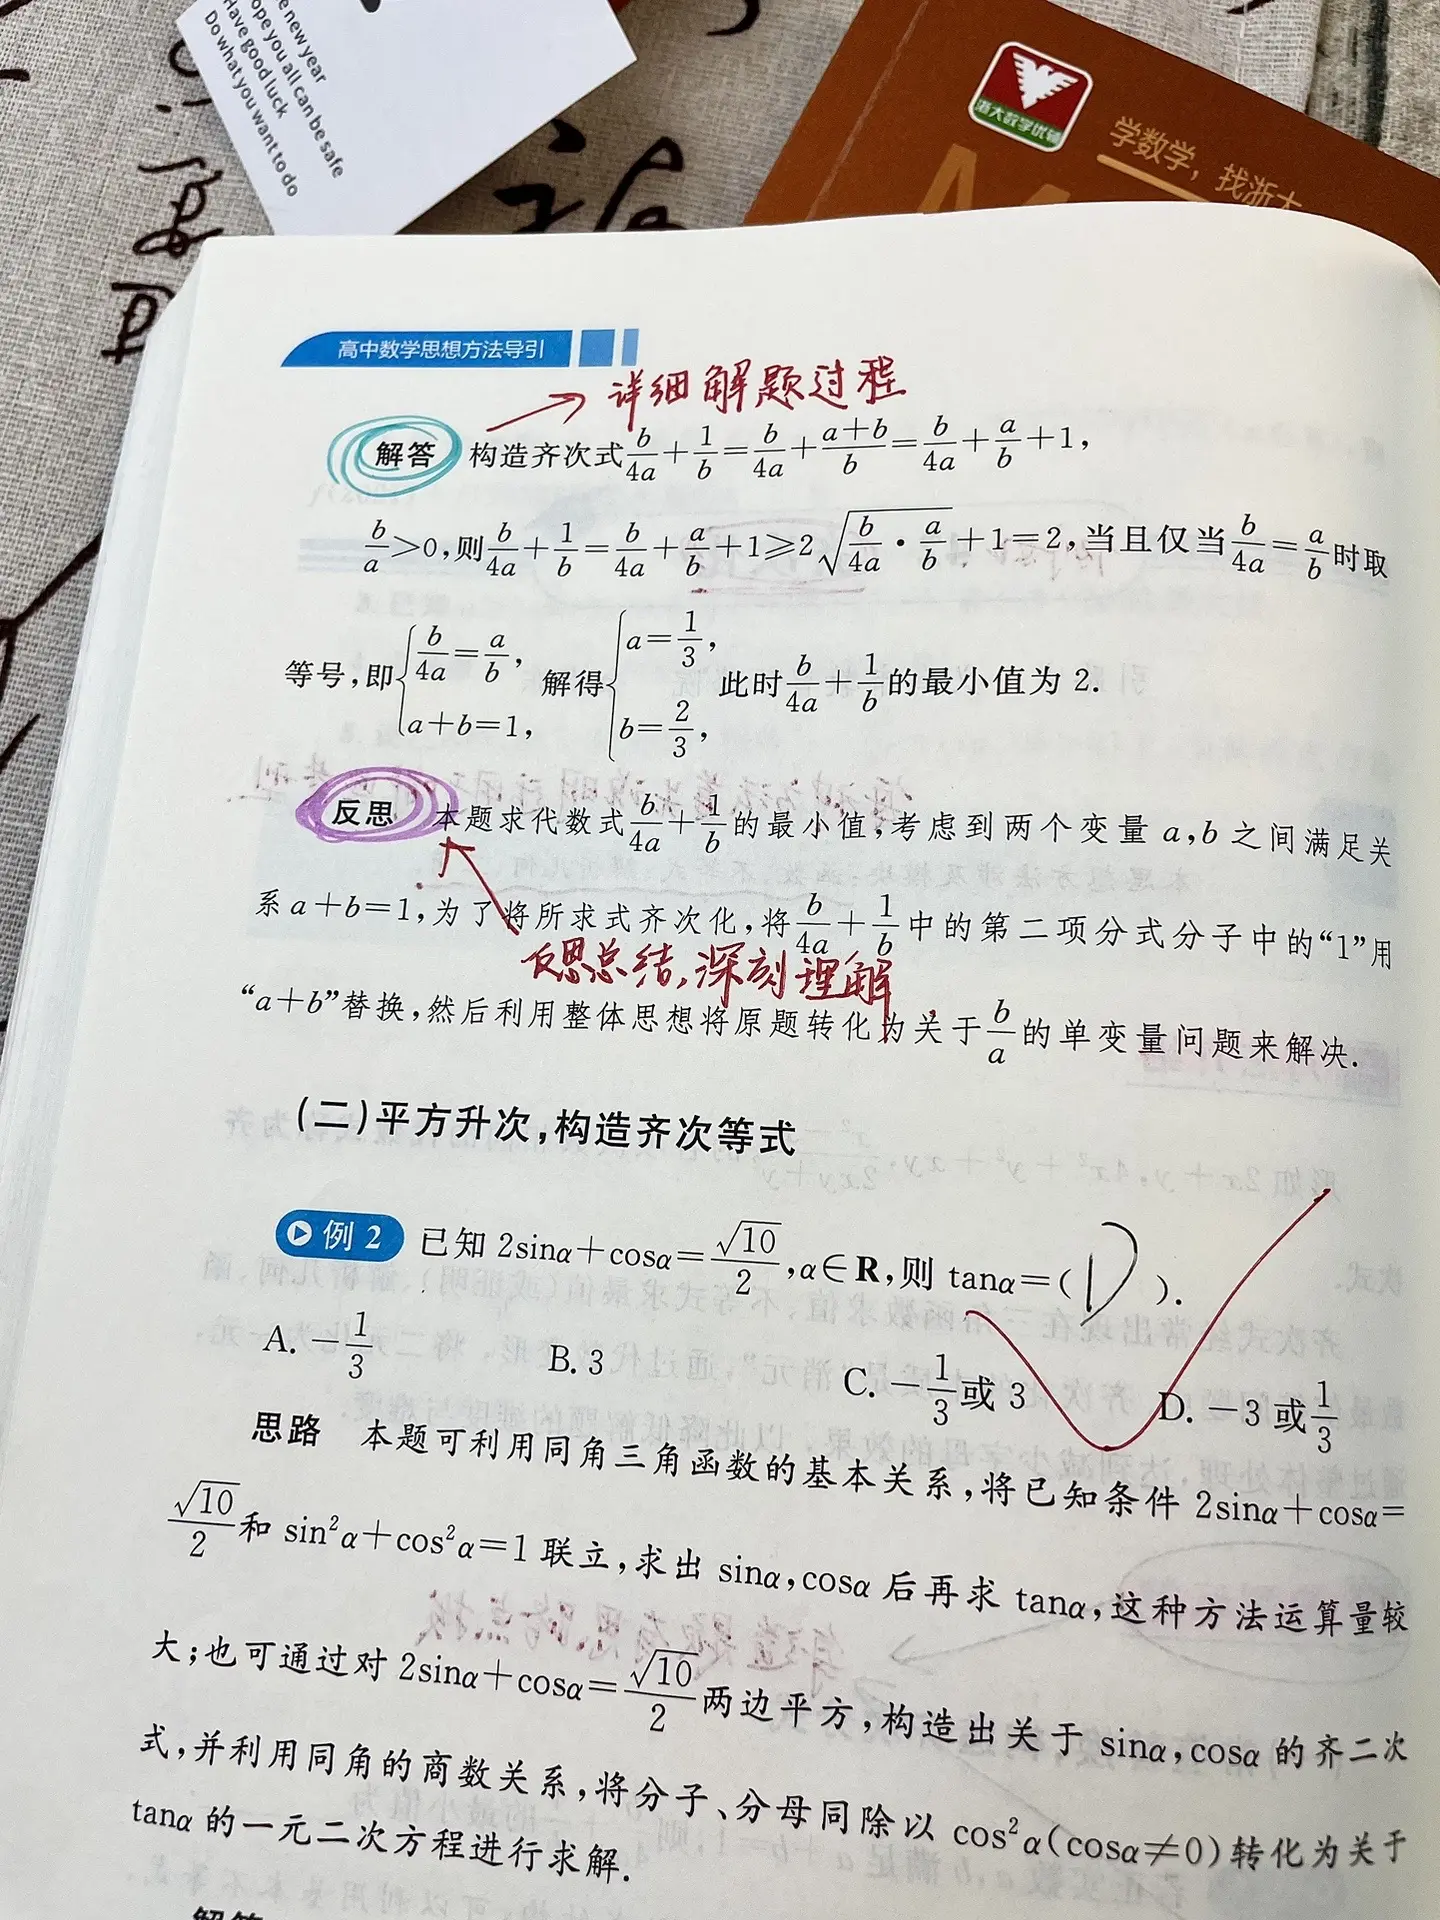 e new year
ope you all can be safe
Have good luck
Do what you want to do
浙大数学优辅
学数学，找浙大
高中数学思想方法导引
→ 详细解题过程
解答 构造齐次式b/4a+1/b=b/4a+(a+b)/b=b/4a+a/b+1,
b/a>0,则b/4a+1/b=b/4a+a/b+1≥2√(b/4a·a/b)+1=2,当且仅当b/4a=a/b时取
等号,即{b/4a=a/b, a+b=1, 解得{a=1/3, b=2/3, 此时b/4a+1/b的最小值为 2.
反思 本题求代数式b/4a+1/b的最小值,考虑到两个变量 a,b 之间满足关
系 a+b=1,为了将所求式齐次化,将b/4a+1/b中的第二项分式分子中的“1”用
反思总结,深刻理解
“a+b”替换,然后利用整体思想将原题转化为关于b/a的单变量问题来解决.
(二)平方升次,构造齐次等式
例 2 已知 2sinα+cosα=√10/2,α∈R,则 tanα=( D ).
A. -1/3 B. 3 C. -1/3或 3 D. -3 或1/3
思路 本题可利用同角三角函数的基本关系,将已知条件 2sinα+cosα=
√10/2和 sin²α+cos²α=1 联立,求出 sinα,cosα 后再求 tanα,这种方法运算量较
大;也可通过对 2sinα+cosα=√10/2两边平方,构造出关于 sinα,cosα 的齐二次
式,并利用同角的商数关系,将分子、分母同除以 cos²α(cosα≠0)转化为关于
tanα 的一元二次方程进行求解.
解答